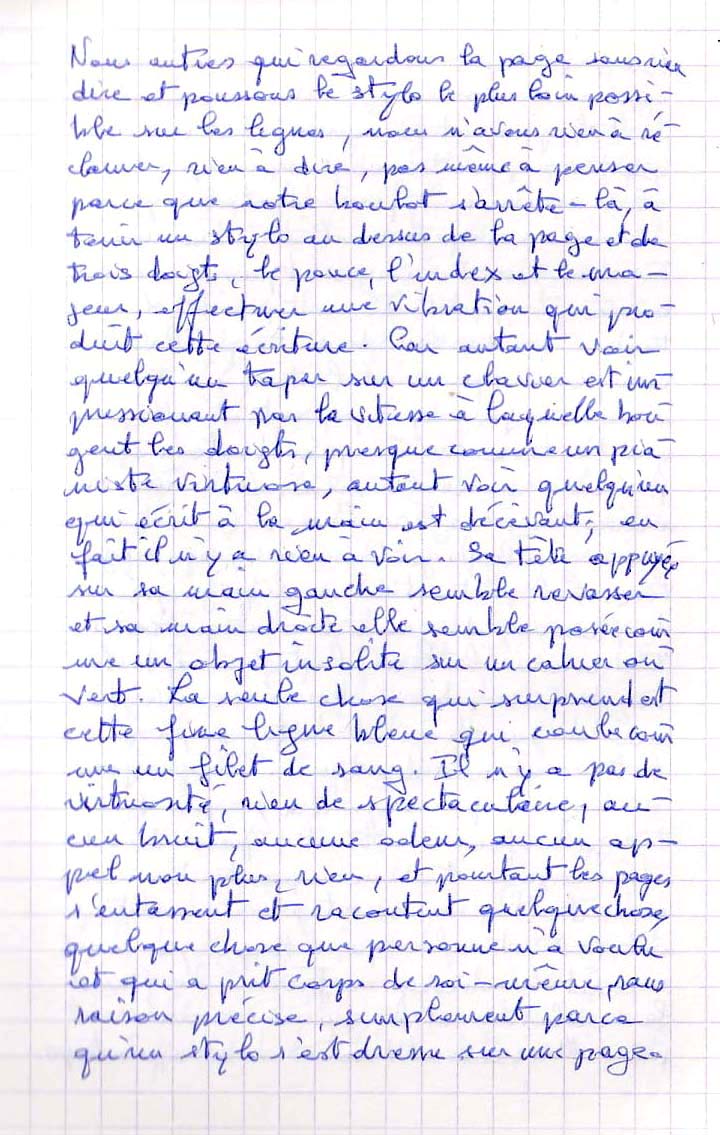 Nous autres qui regardons la page sans rien
dire et poussons le stylo le plus loin possi-
ble sur les lignes, nous n'avons rien à ré-
clamer, rien à dire, pas même à penser
parce que notre boulot s'arrête-là, à
tenir un stylo au dessus de la page et de
trois doigts, le pouce, l'index et le ma-
jeur, effectuer une vibration qui pro-
duit cette écriture. Car autant voir
quelqu'un taper sur un clavier est im-
pressionant par la vitesse à laquelle bou-
gent les doigts, presque comme un pia-
niste virtuose, autant voir quelqu'un
qui écrit à la main est décevant; en
fait il n'y a rien à voir. Sa tête appuyée
sur sa main gauche semble revasser
et sa main droite elle semble posée com-
me un objet insolite sur un cahier ou-
vert. La seule chose qui surprend est
cette fine ligne bleue qui coule com-
me un filet de sang. Il n'y a pas de
virtuosité, rien de spectaculaire, au-
cun bruit, aucune odeur, aucun ap-
pel non plus, rien, et pourtant les pages
s'entassent et racontent quelque chose,
quelque chose que personne n'a voulu
et qui a prit corps de soi-même, sans
raison précise, simplement parce
qu'un stylo s'est dressé sur une page.